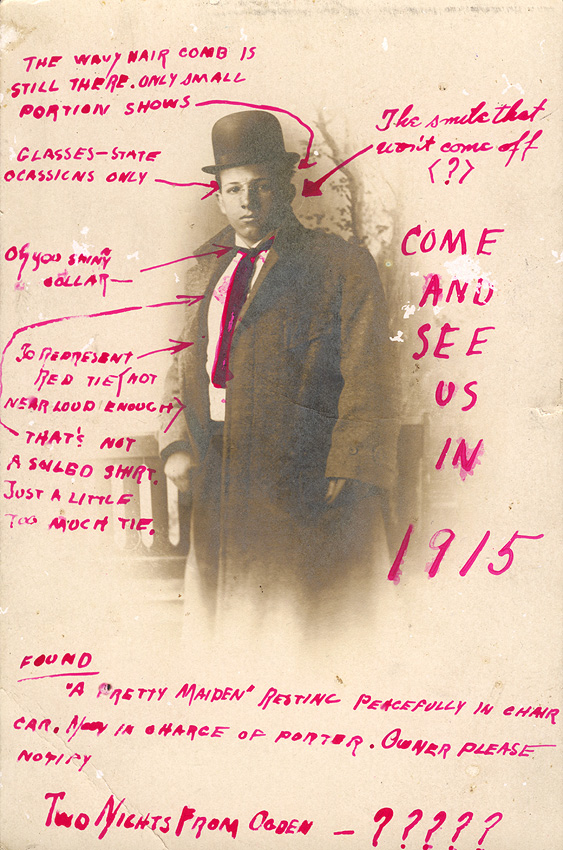 THE WAVY HAIR COMB IS
STILL THERE. ONLY SMALL
PORTION SHOWS
The smile that
won't come off
(?)
GLASSES—STATE
OCASSIONS ONLY
Oh you SHINY
COLLAR
TO REPRESENT
RED TIE (NOT
NEAR LOUD ENOUGH)
THAT'S NOT
A SOILED SHIRT.
JUST A LITTLE
TOO MUCH TIE.
COME
AND
SEE
US
IN
1915
FOUND
"A PRETTY MAIDEN" RESTING PEACEFULLY IN CHAIR
CAR. NOW IN CHARGE OF PORTER. OWNER PLEASE
NOTIFY
TWO NIGHTS FROM OGDEN — ?????